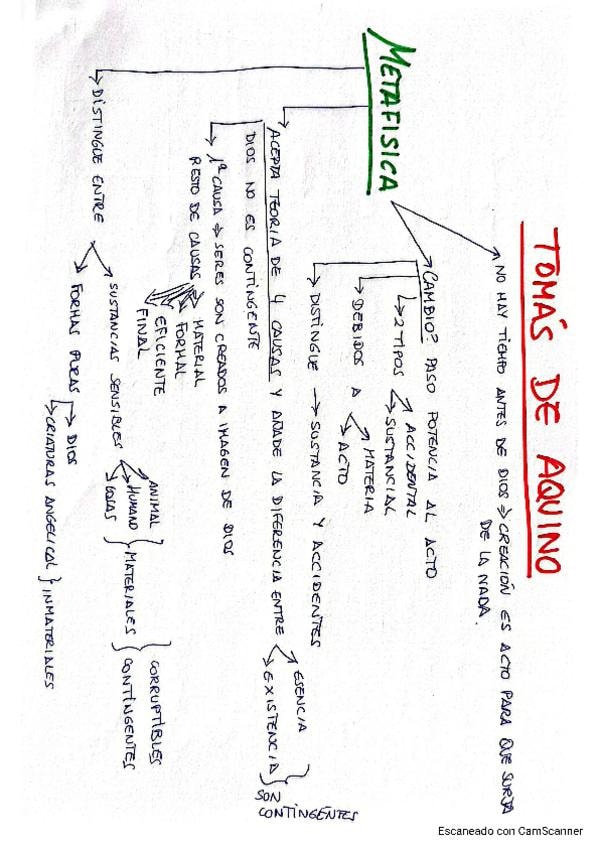 TOMÁS DE AQUINO
METAFISICA
NO HAY TIEMPO ANTES DE DIOS ⇒ CREACIÓN ES ACTO PARA QUE SURJA
DE LA NADA.
CAMBIO? PASO POTENCIA AL ACTO
2 TIPOS
ACCIDENTAL
SUSTANCIAL
DEBIDOS A
MATERIA
ACTO
DISTINGUE → SUSTANCIA Y ACCIDENTES
ACEPTA TEORIA DE 4 CAUSAS Y AÑADE LA DIFERENCIA ENTRE
ESENCIA
EXISTENCIA
SON
CONTINGENTES
DIOS NO ES CONTINGENTE
1ª CAUSA ⇒ SERES SON CREADOS A IMAGEN DE DIOS
RESTO DE CAUSAS
MATERIAL
FORMAL
EFICIENTE
FINAL
DISTINGUE ENTRE
SUSTANCIAS SENSIBLES
ANIMAL
HUMANO
COSAS
MATERIALES
CORRUPTIBLES
CONTINGENTES
FORMAS PURAS
DIOS
CRIATURAS ANGELICAL
INMATERIALES
Escaneado con CamScanner